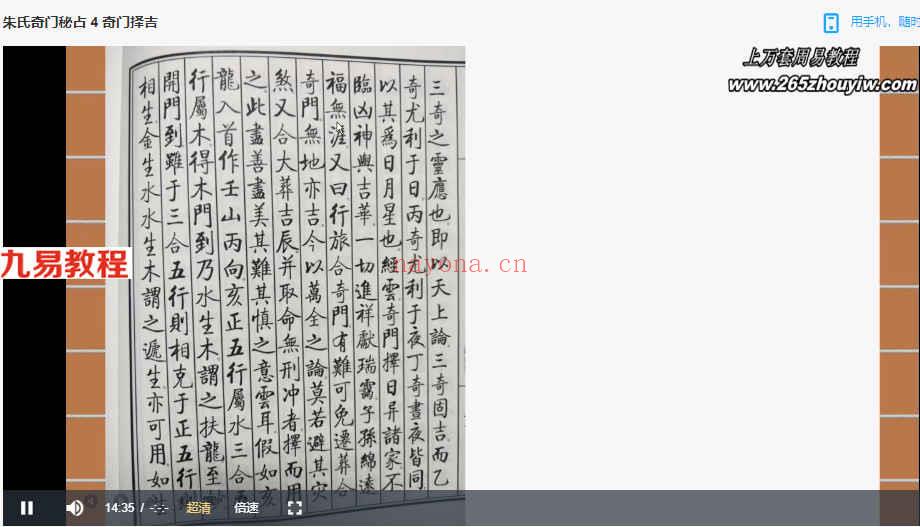 朱氏奇门秘占 4 奇门择吉
用手机，随时
上万套周易教程
www.265zhouyiw.com
三奇之靈應也即以天上論三奇固吉而乙
奇尤利于日丙奇尤利于夜丁奇晝夜皆同
以其爲日月星也經雲奇門擇日异諸家不
臨凶神與吉華一切進祥獻瑞靄子孫綿遠
福無涯又曰行旅合奇門有難可免遷葬合
奇門無地亦吉今以萬全之論莫若避其灾
煞又合大葬吉辰并取命無刑冲者擇而用
之此盡善盡美其難其慎之意雲耳假如亥
龍入首作壬山丙向亥正五行屬水三合五
行屬木得木門到乃水生木謂之扶龍至
開門到雖于三合五行則相克于正五行
相生金生水水生木謂之遞生亦可用如
九易教程
nayona.cn
14:35 / -:-:-
超清
倍速